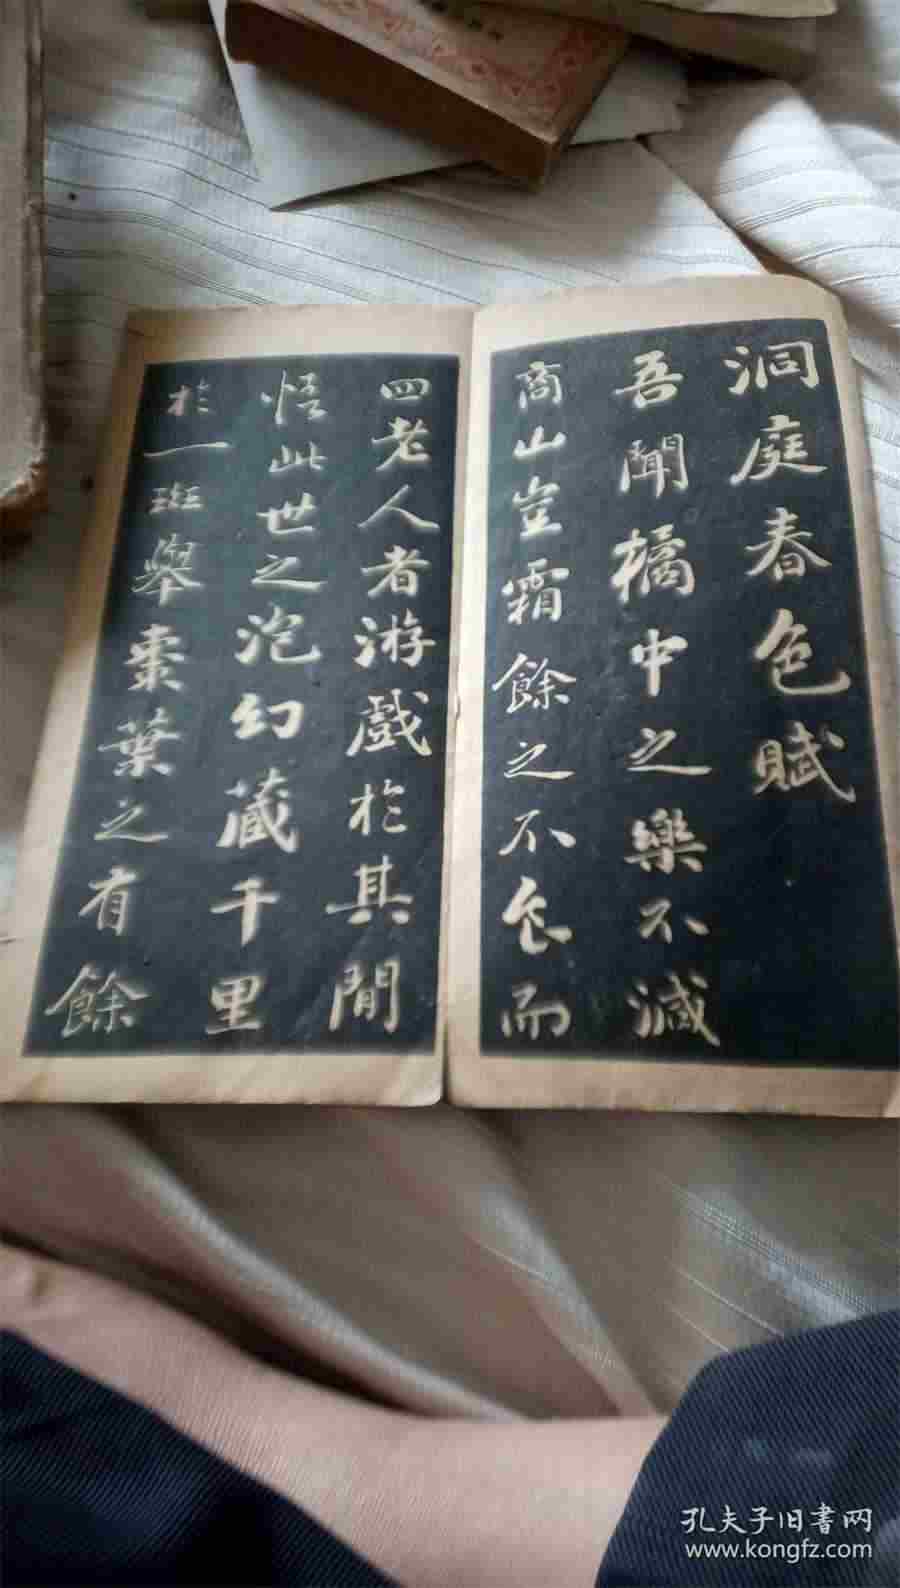 洞庭春色賦
吾聞橘中之樂不減
商山豈霜餘之不食而
四老人者游戲於其間
悟此世之泡幻藏千里
於一班舉棗葉之有餘
孔夫子旧書网
www.kongfz.com